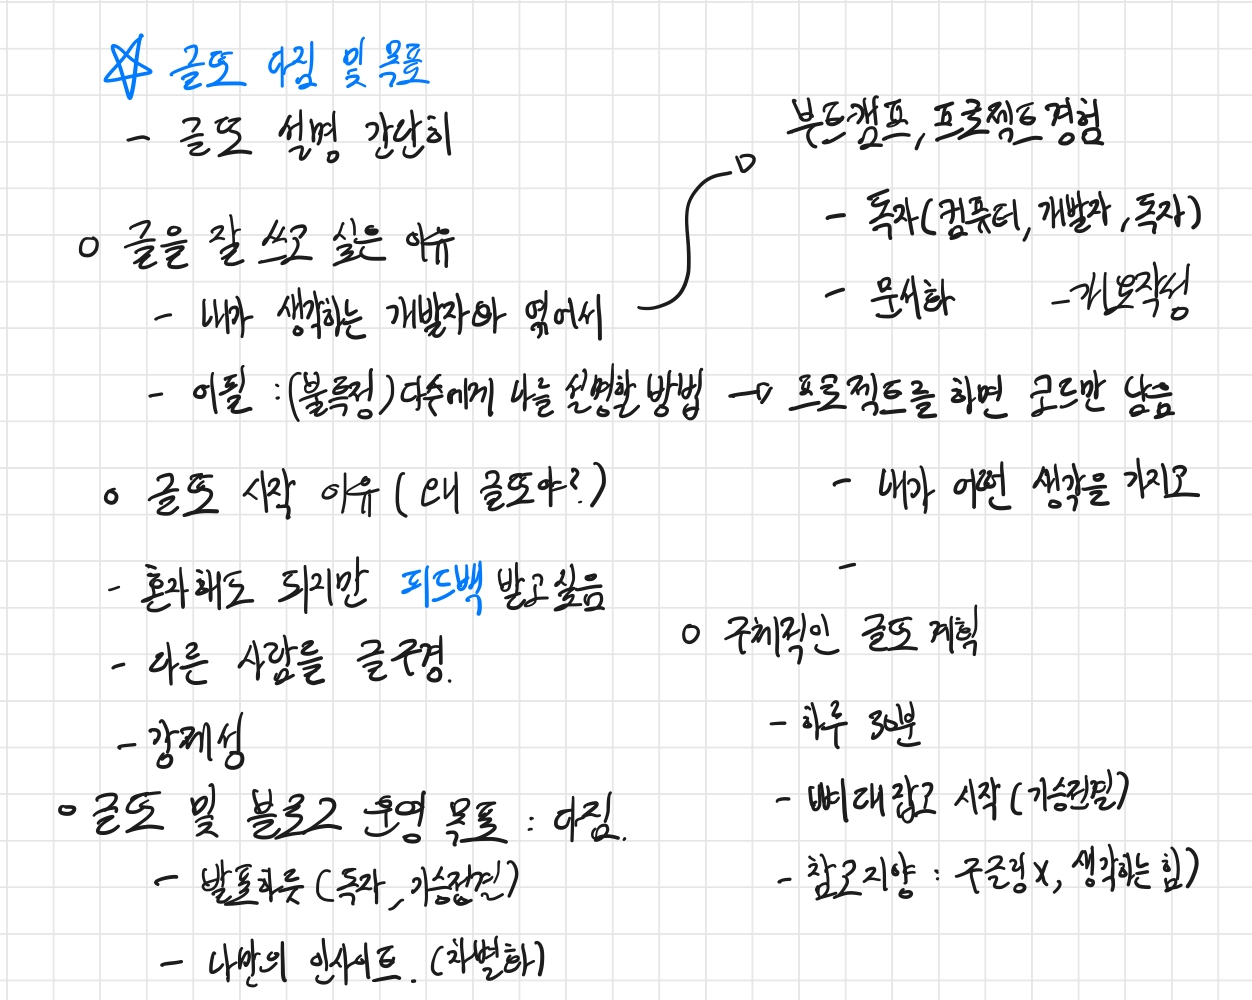 ☆ 글또 다짐 및 목표
- 글또 설명 간단히
o 글을 잘 쓰고 싶은 이유
- 내가 생각하는 개발자와 엮어서
- 어필 : (불특정) 다수에게 나를 설명할 방법 → 프로젝트를 하면 코드만 남음
부트캠프, 프로젝트 경험
- 독자(컴퓨터, 개발자, 독자)
- 문서화
- 가독작성
- 내가 어떤 생각을 가지고
-
o 글또 시작 이유 (왜 글또야?)
- 혼자해도 되지만 피드백 받고싶음
- 다른 사람들 글구경.
- 강제성
o 글또 및 블로그 운영 목표 : 다짐.
- 발표하듯 (독자,
- 나만의 인사이트. (차별화)
o 구체적인 글또 계획
- 하루 30분
- 뼈대잡고 시작
- 참고지양 : 구글링 X, 생각하는 힘)